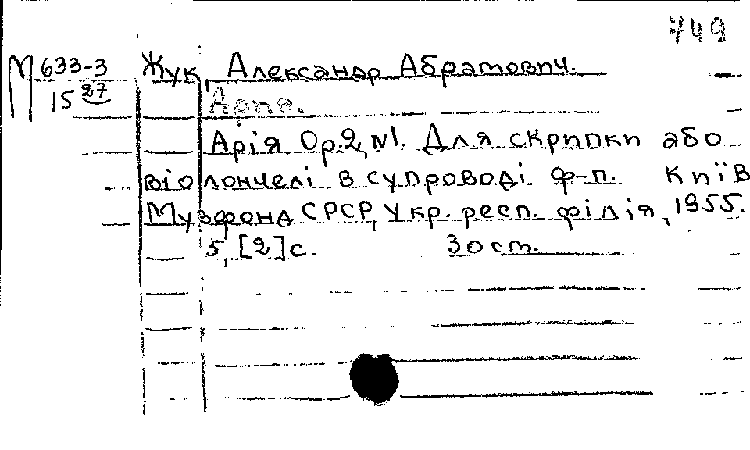 749
М 633-3 Жук, Александр Абрамович.
15 27 Ария.
Арія Ор.2, №1. Для скрипки або
віолончелі в супроводі ф-п. Київ
Музфонд СРСР, Укр. респ. філія, 1955.
5, [2] с. 30 ст.